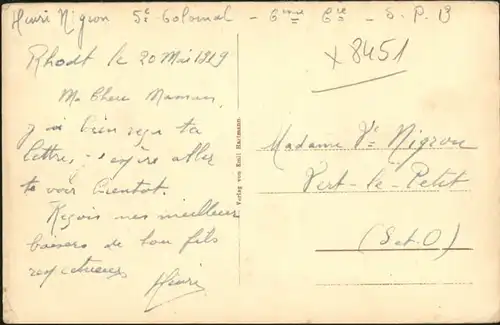 Henri Nigron 5e Colonial - 6ème Cie - S. P. 13
x 8451
Rhodt le 20 Mai 1919
Ma Chère Maman
j'ai bien reçu ta
lettre, j'espère aller
te voir bientot.
Reçois mes meilleur
baisers de ton fils
respectueux
Henri
Verlag von Emil Hartmann.
Madame Ve Nigron
Vert-le-Petit
(S-et-O)